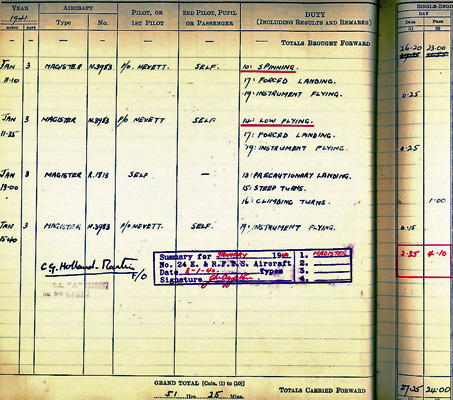 YEAR AIRCRAFT PILOT, OR 2ND PILOT, PUPIL DUTY
1941 1ST PILOT OR PASSENGER (INCLUDING RESULTS AND REMARKS)
MONTH DATE Type No.
SINGLE-ENGI
DAY
DUAL PILOT
— — — — — — TOTALS BROUGHT FORWARD 26·20 23·00
JAN 3 MAGISTER N.3983 P/O. NEVETT. SELF. 10: SPINNING.
11·10 17: FORCED LANDING. 0·25
19: INSTRUMENT FLYING.
JAN 3 MAGISTER N.3983 P/O NEVETT SELF 14: LOW FLYING.
11·35 17: FORCED LANDING. 0·25
19: INSTRUMENT FLYING.
JAN 3 MAGISTER R.1913 SELF — 13: PRECAUTIONARY LANDING.
13·00 15: STEEP TURNS.
16: CLIMBING TURNS. 1·00
JAN 3 MAGISTER N.3983 P/O NEVETT. SELF. 19: INSTRUMENT FLYING. 0·15
15·40
C.G. Holland-Martin F/O
Summary for JANUARY 19 1. MAGISTER 2·35 4·10
No. 24 E. & R.F.T.S. Aircraft 2.
Date Types 3.
Signature 4.
GRAND TOTAL [Cols. (1) to (10)]
51 Hrs. 25 Mins.
TOTALS CARRIED FORWARD 27·25 24:00